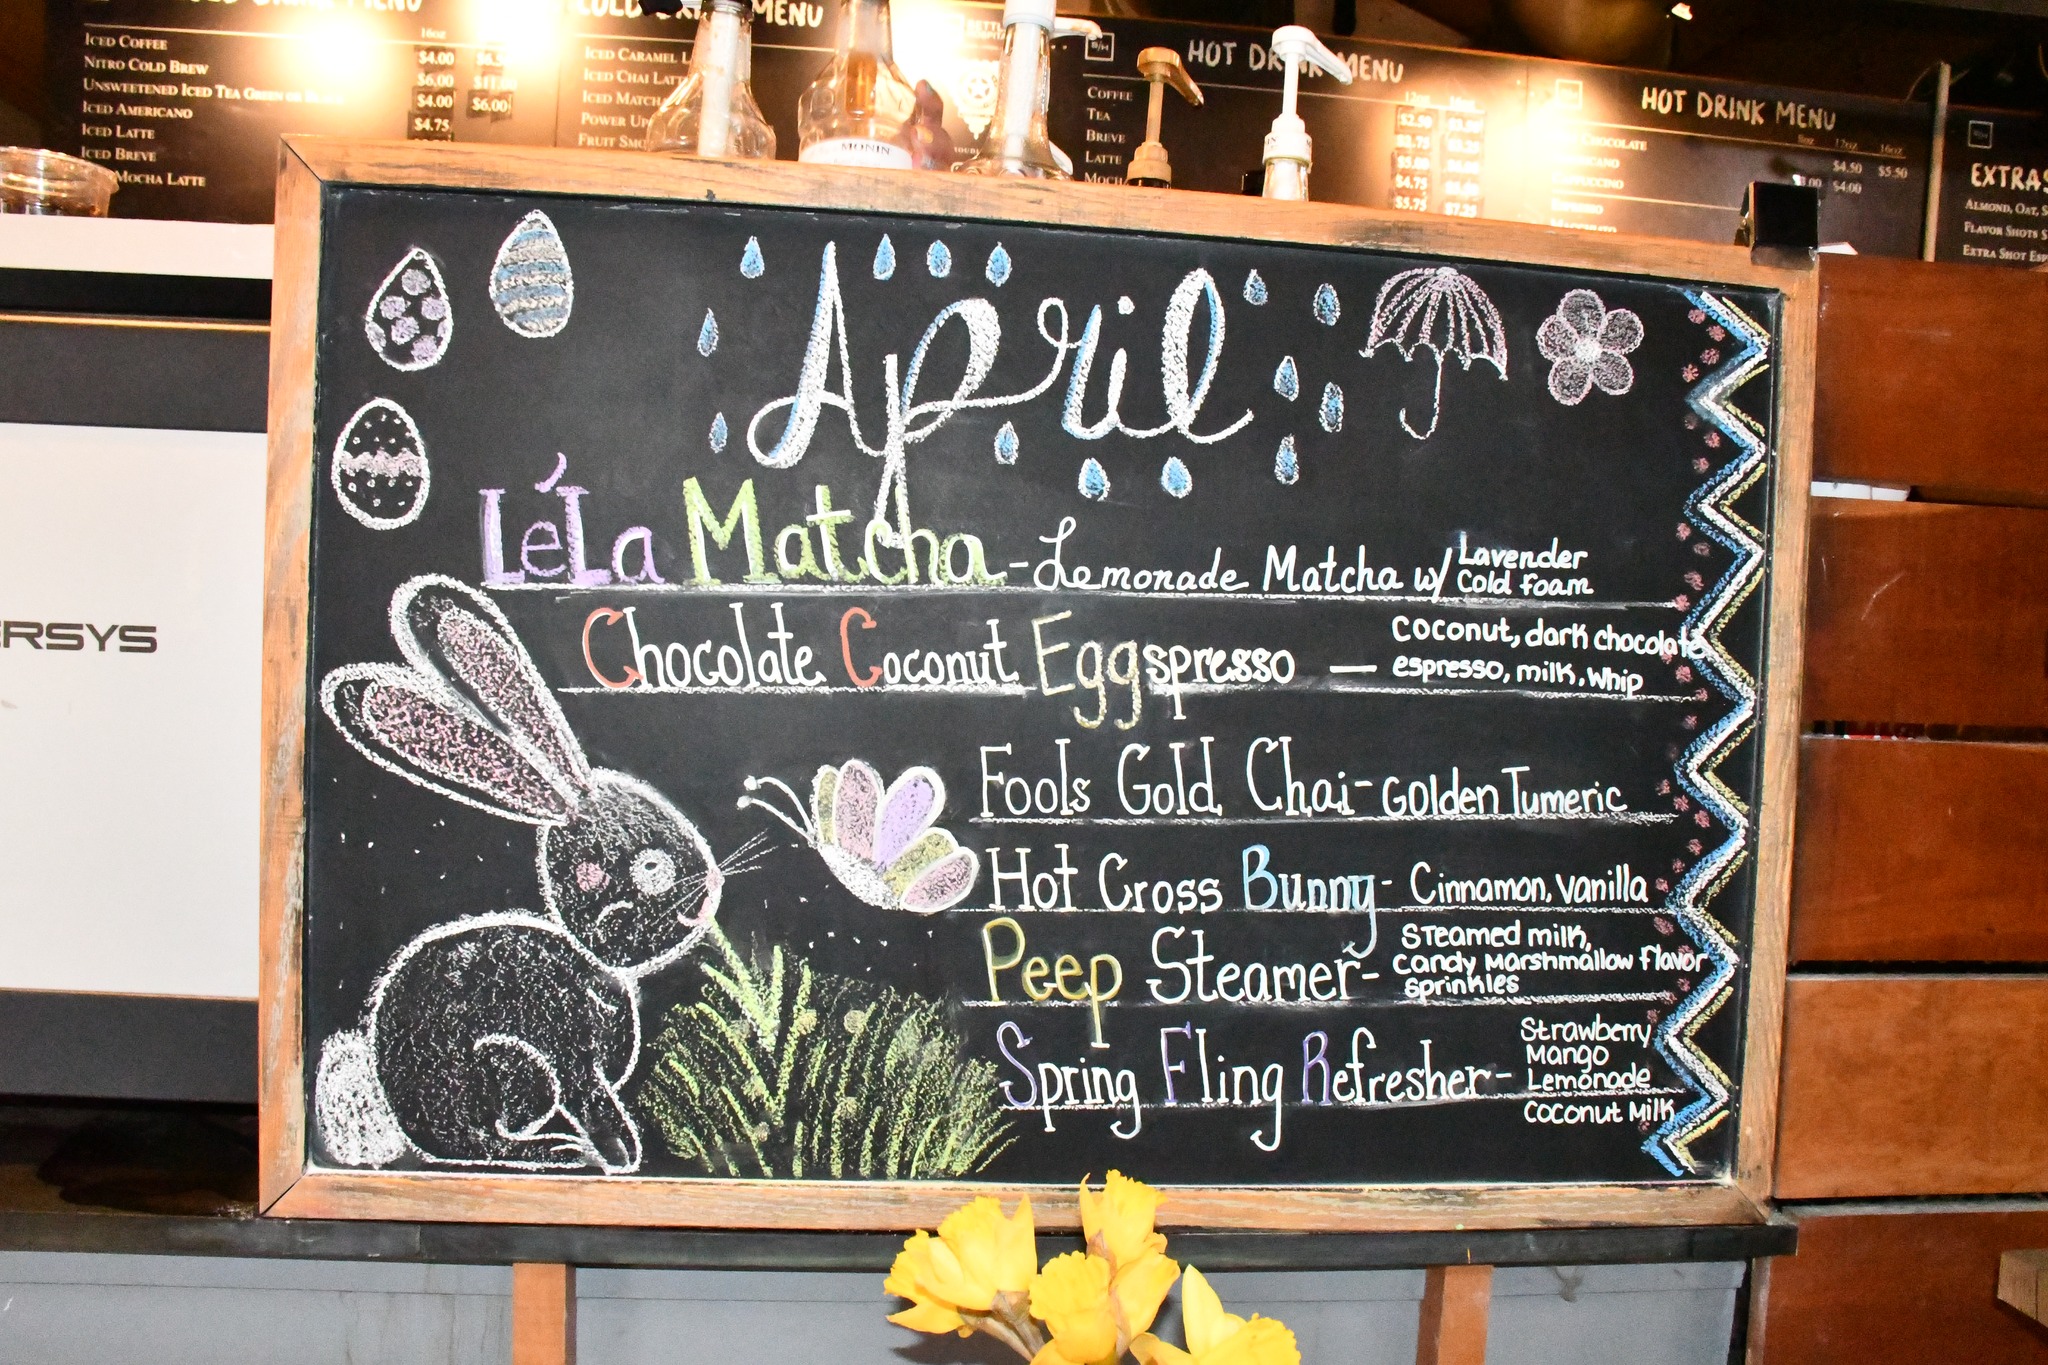 COLD DRINK MENU
16oz
ICED COFFEE $4.00
NITRO COLD BREW $6.00
UNSWEETENED ICED TEA GREEN $4.00 $6.00
ICED AMERICANO $4.75
ICED LATTE
ICED BREVE
MOCHA LATTE
COLD DRINK MENU
ICED CARAMEL L
ICED CHAI LATT
ICED MATCHA
POWER UP
FRUIT SMO
MONIN
B/H
HOT DRINK MENU
12oz
COFFEE $2.50
TEA $2.75
BREVE $5.00
LATTE $4.75
MOCH $5.75 $7.25
HOT DRINK MENU
8oz 12oz 16oz
CHOCOLATE $4.50 $5.50
$4.00
EXTRAS
ALMOND, OAT, S
FLAVOR SHOTS
EXTRA SHOT ESP
ERSYS
April
LéLa Matcha - Lemonade Matcha w/ Lavender
Cold Foam
Chocolate Coconut Eggspresso — coconut, dark chocolate
espresso, milk, whip
Fools Gold Chai - Golden Tumeric
Hot Cross Bunny - Cinnamon, Vanilla
Peep Steamer - Steamed milk,
Candy Marshmallow flavor
sprinkles
Spring Fling Refresher - Strawberry
Mango
Lemonade
Coconut Milk